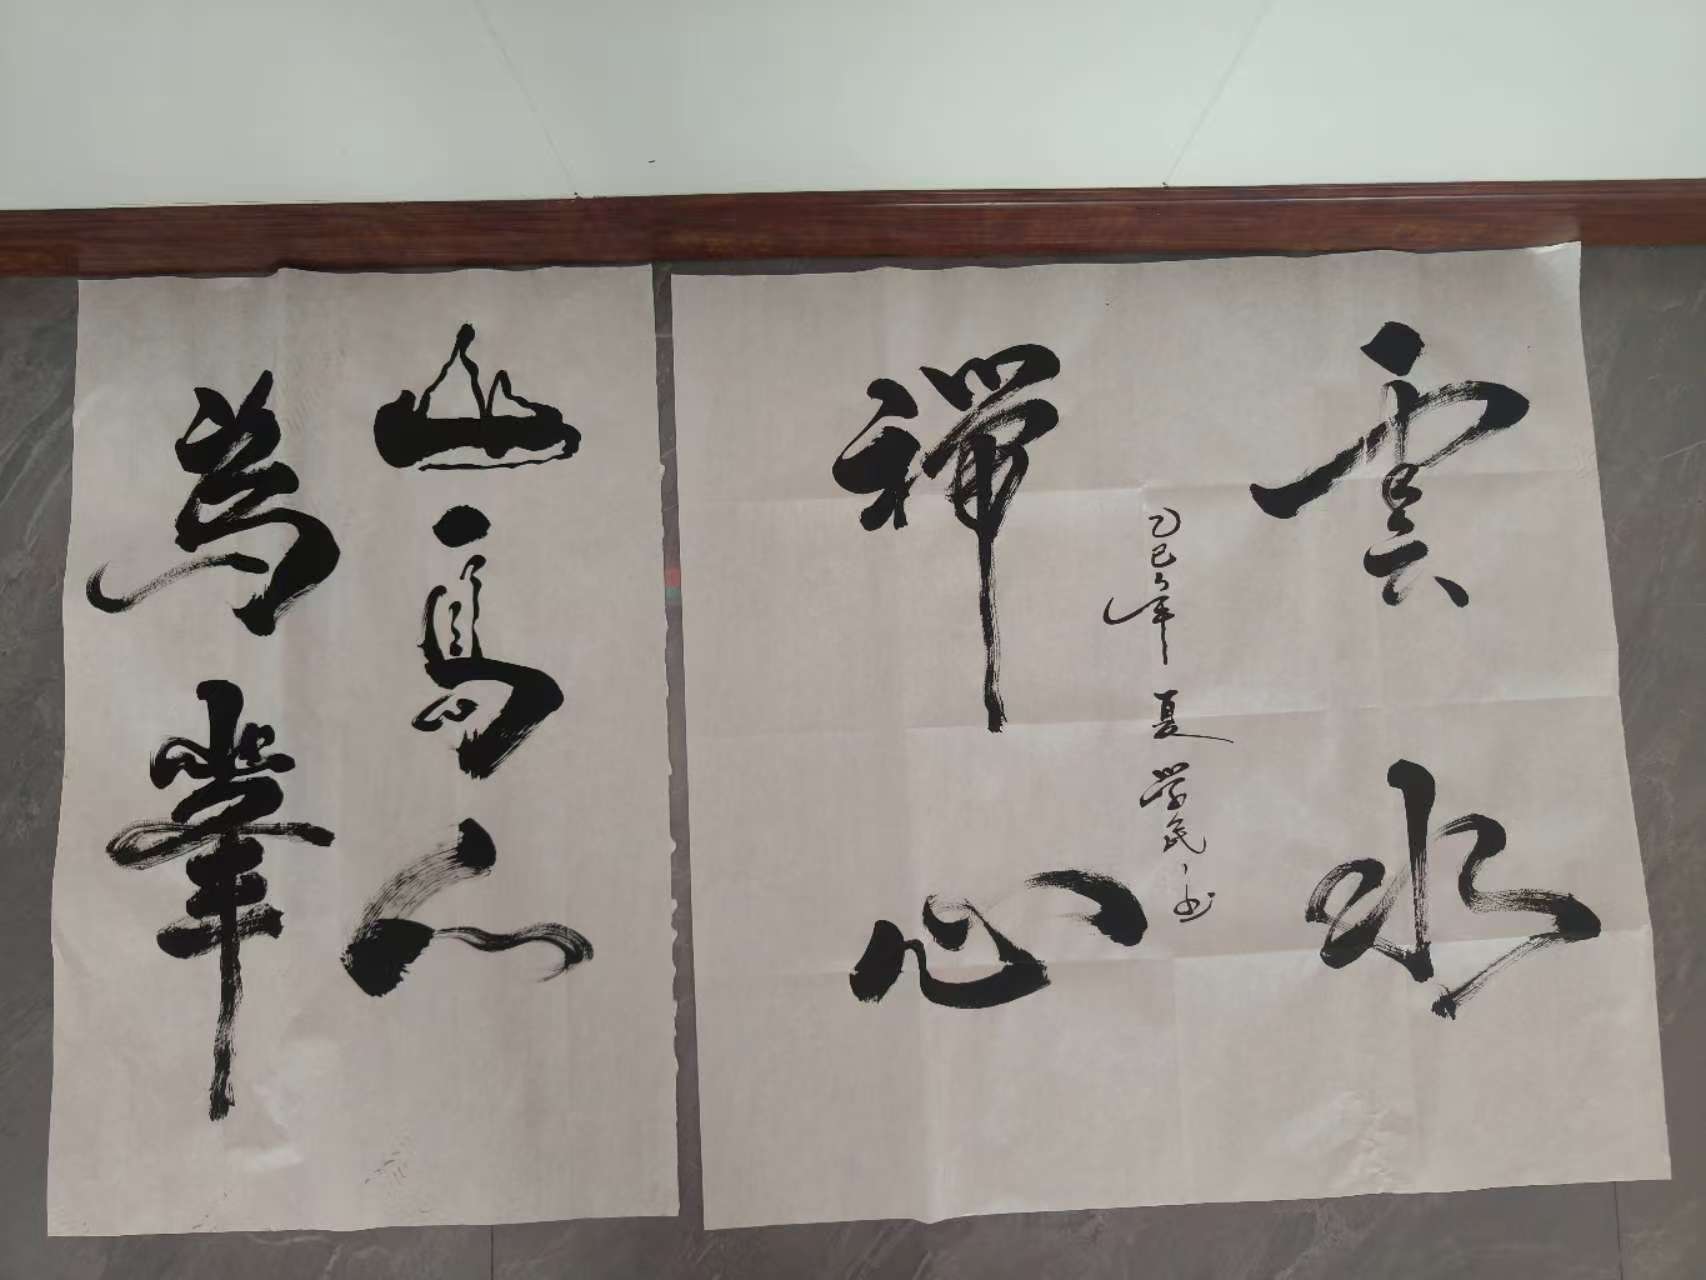 雲水
禪心
乙巳年夏学民书
山高人
為峯